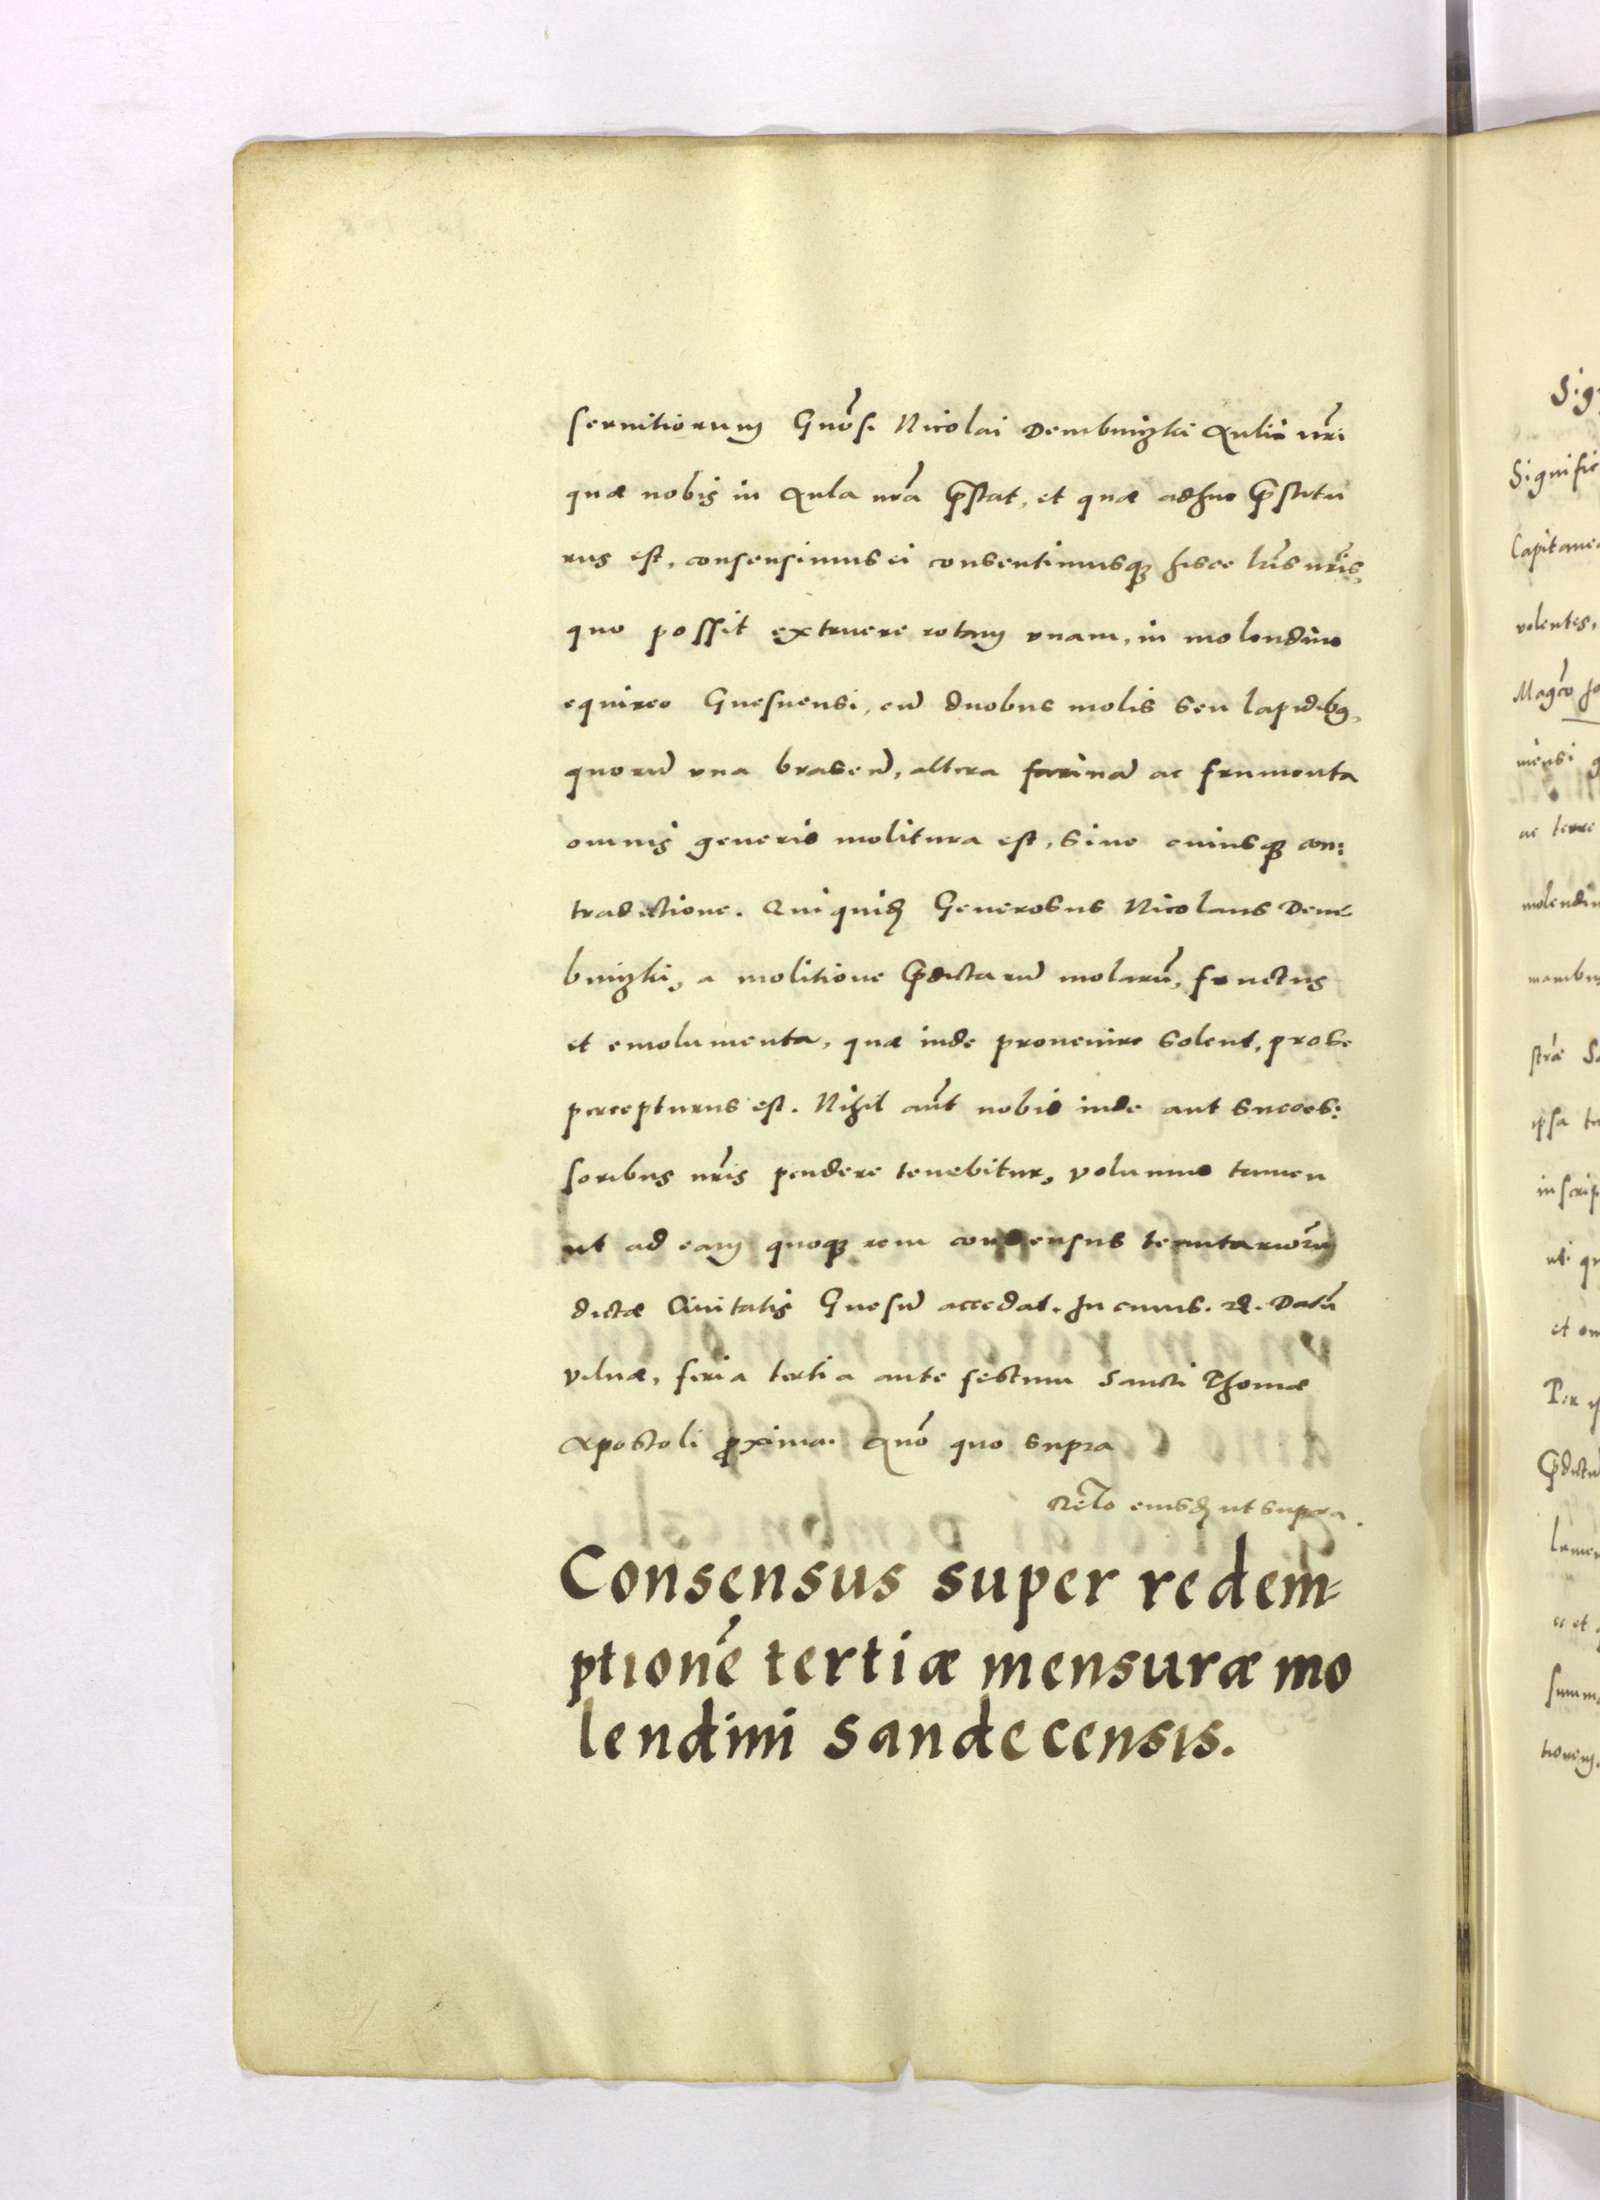 seruitiorum Gnosi Nicolai Dembnizki Aulici nri
quæ nobis in Aula nra pstat, et quæ adhuc pstitu
rus est, consensimus ei consentimusq hisce lris nris,
quo possit extruere rotam vnam, in molendino
equireo Gnesnensi, cu duobus molis seu lapidibq,
quoru vna braseu, altera farina ac frumenta
omnis generis molitura est, sine cuiusq con:
tradictione. Qui quid Generosus Nicolaus Dem-
bnizki, a molitione pdictaru molaru, fructus
et emolumenta, quæ inde prouenire solent, pro se
percepturus est. Nihil aut nobis inde aut succes:
soribus nris pendere tenebitur, volumus tamen
ut ad eam quoq rem consensus tenutariorum
dictæ Ciuitatis Gnesn accedat. In cuius. rei. Datu
vilnæ, feria tertia ante festum Sancti Thomæ
Apostoli pxima. Ano quo supra
Relo eiusd ut supra.
Consensus super redem-
ptione tertiæ mensuræ mo
lendini Sandecensis.
Signific
Capitane
volentes,
ac terre
molendin
et om
summ